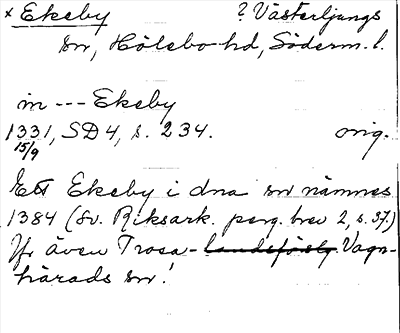 x Ekeby ? Västerljungs
sn, Hölebo hd, Söderm. l.
in --- Ekeby
1331, SD 4, s. 234. orig.
15/9
Ett Ekeby i dna sn nämnes
1384 (Sv. Riksark. perg. brev 2, s. 37.)
Jfr även Trosa- landsförsg Vagn-
härads sn!